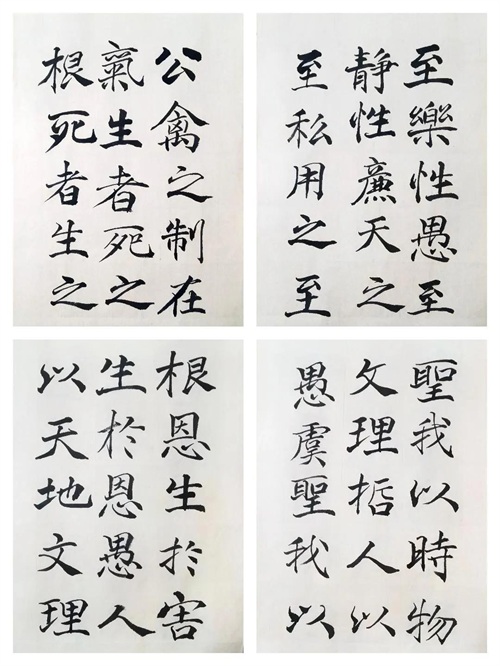 至樂性愚至
靜性廉天之
至私用之至
公禽之制在
氣生者死之
根死者生之
根恩生於害
生於恩愚人
以天地文理
聖我以時物
文理哲人以
愚虞聖我以